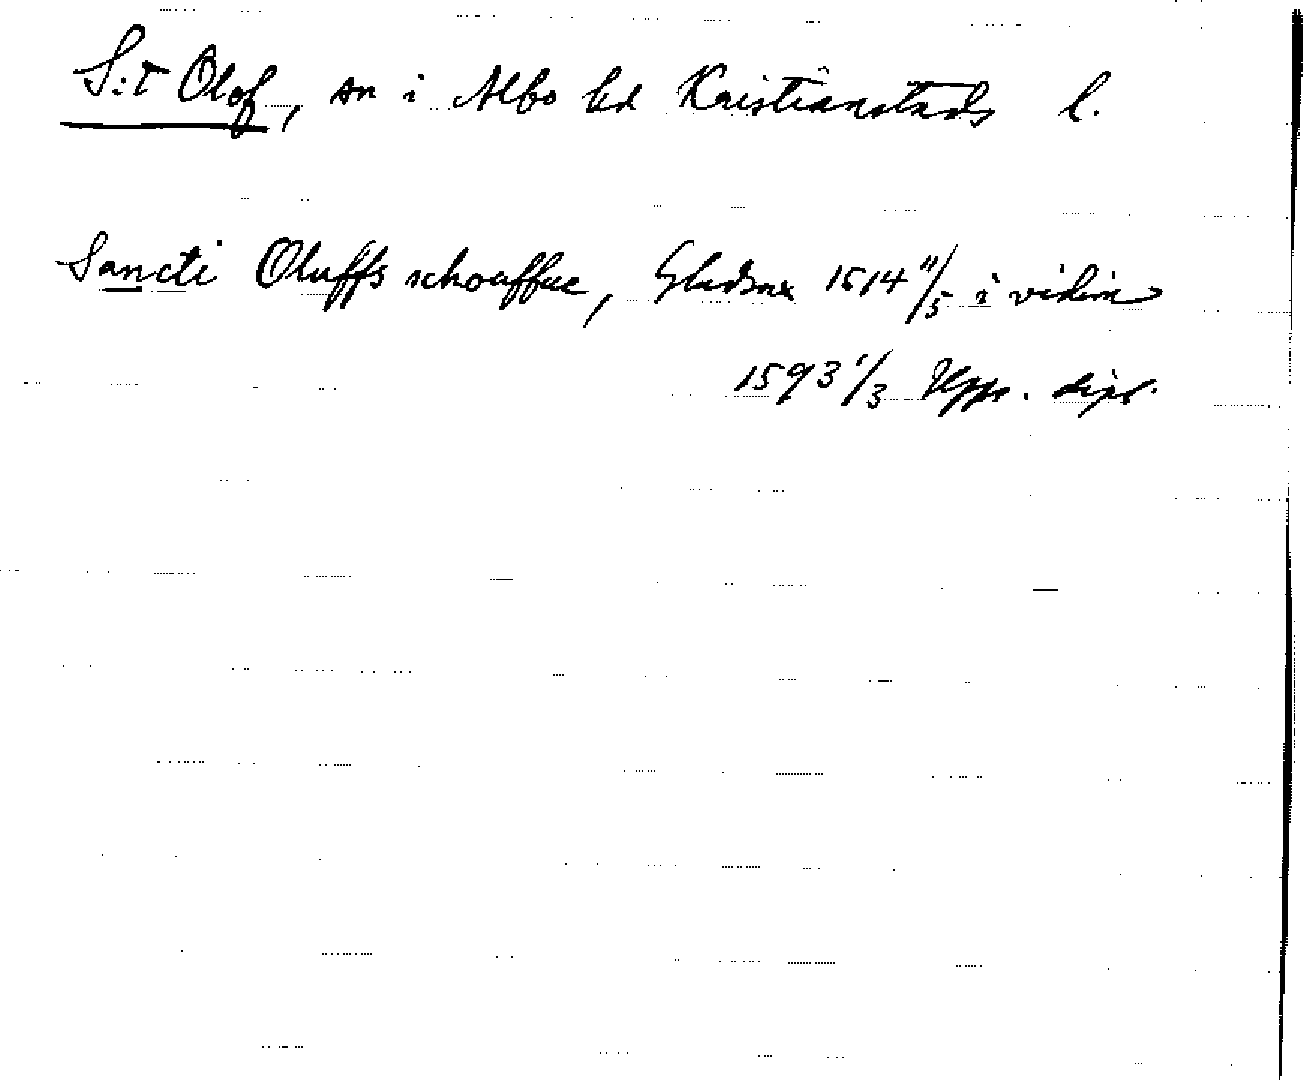 S:t Olof, sn i Albo hd Kristianstads l.
Sancti Oluffs schouffue, Gladsax 1514 11/5 i vidim
1593 1/3 Upps. dipl.